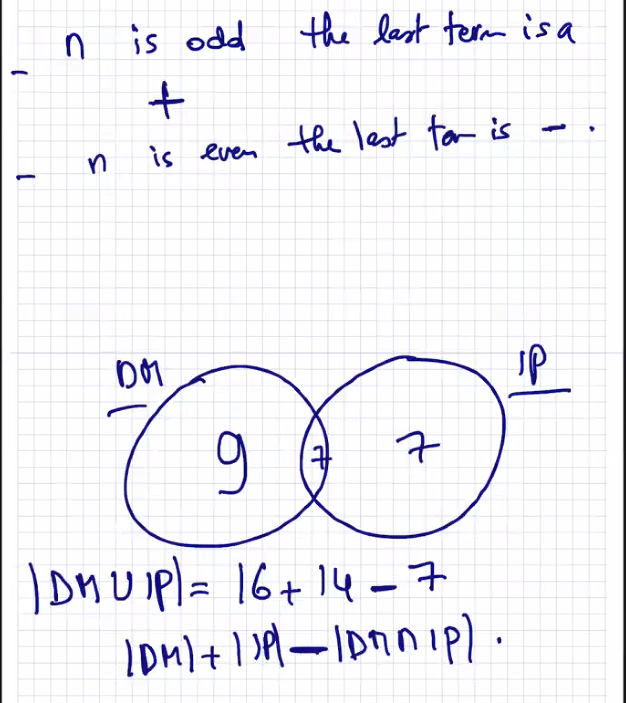 - n is odd the last term is a
+
- n is even the last term is - .
DM
IP
9 7 7
|DM ∪ IP| = 16 + 14 - 7
|DM| + |IP| - |DM ∩ IP| .